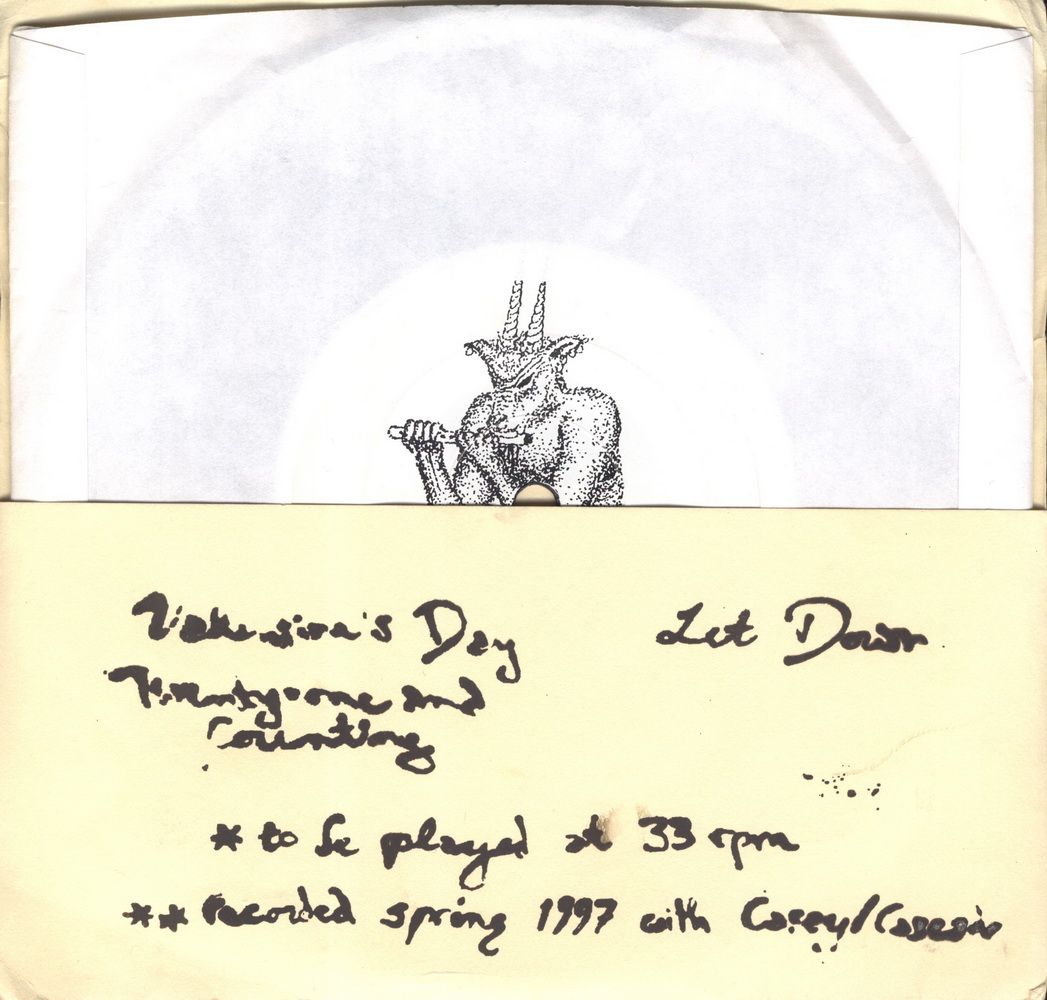 Valentine's Day
Let Down
Twenty-one and
Counting
* to be played at 33 rpm
** recorded spring 1997 with Casey/